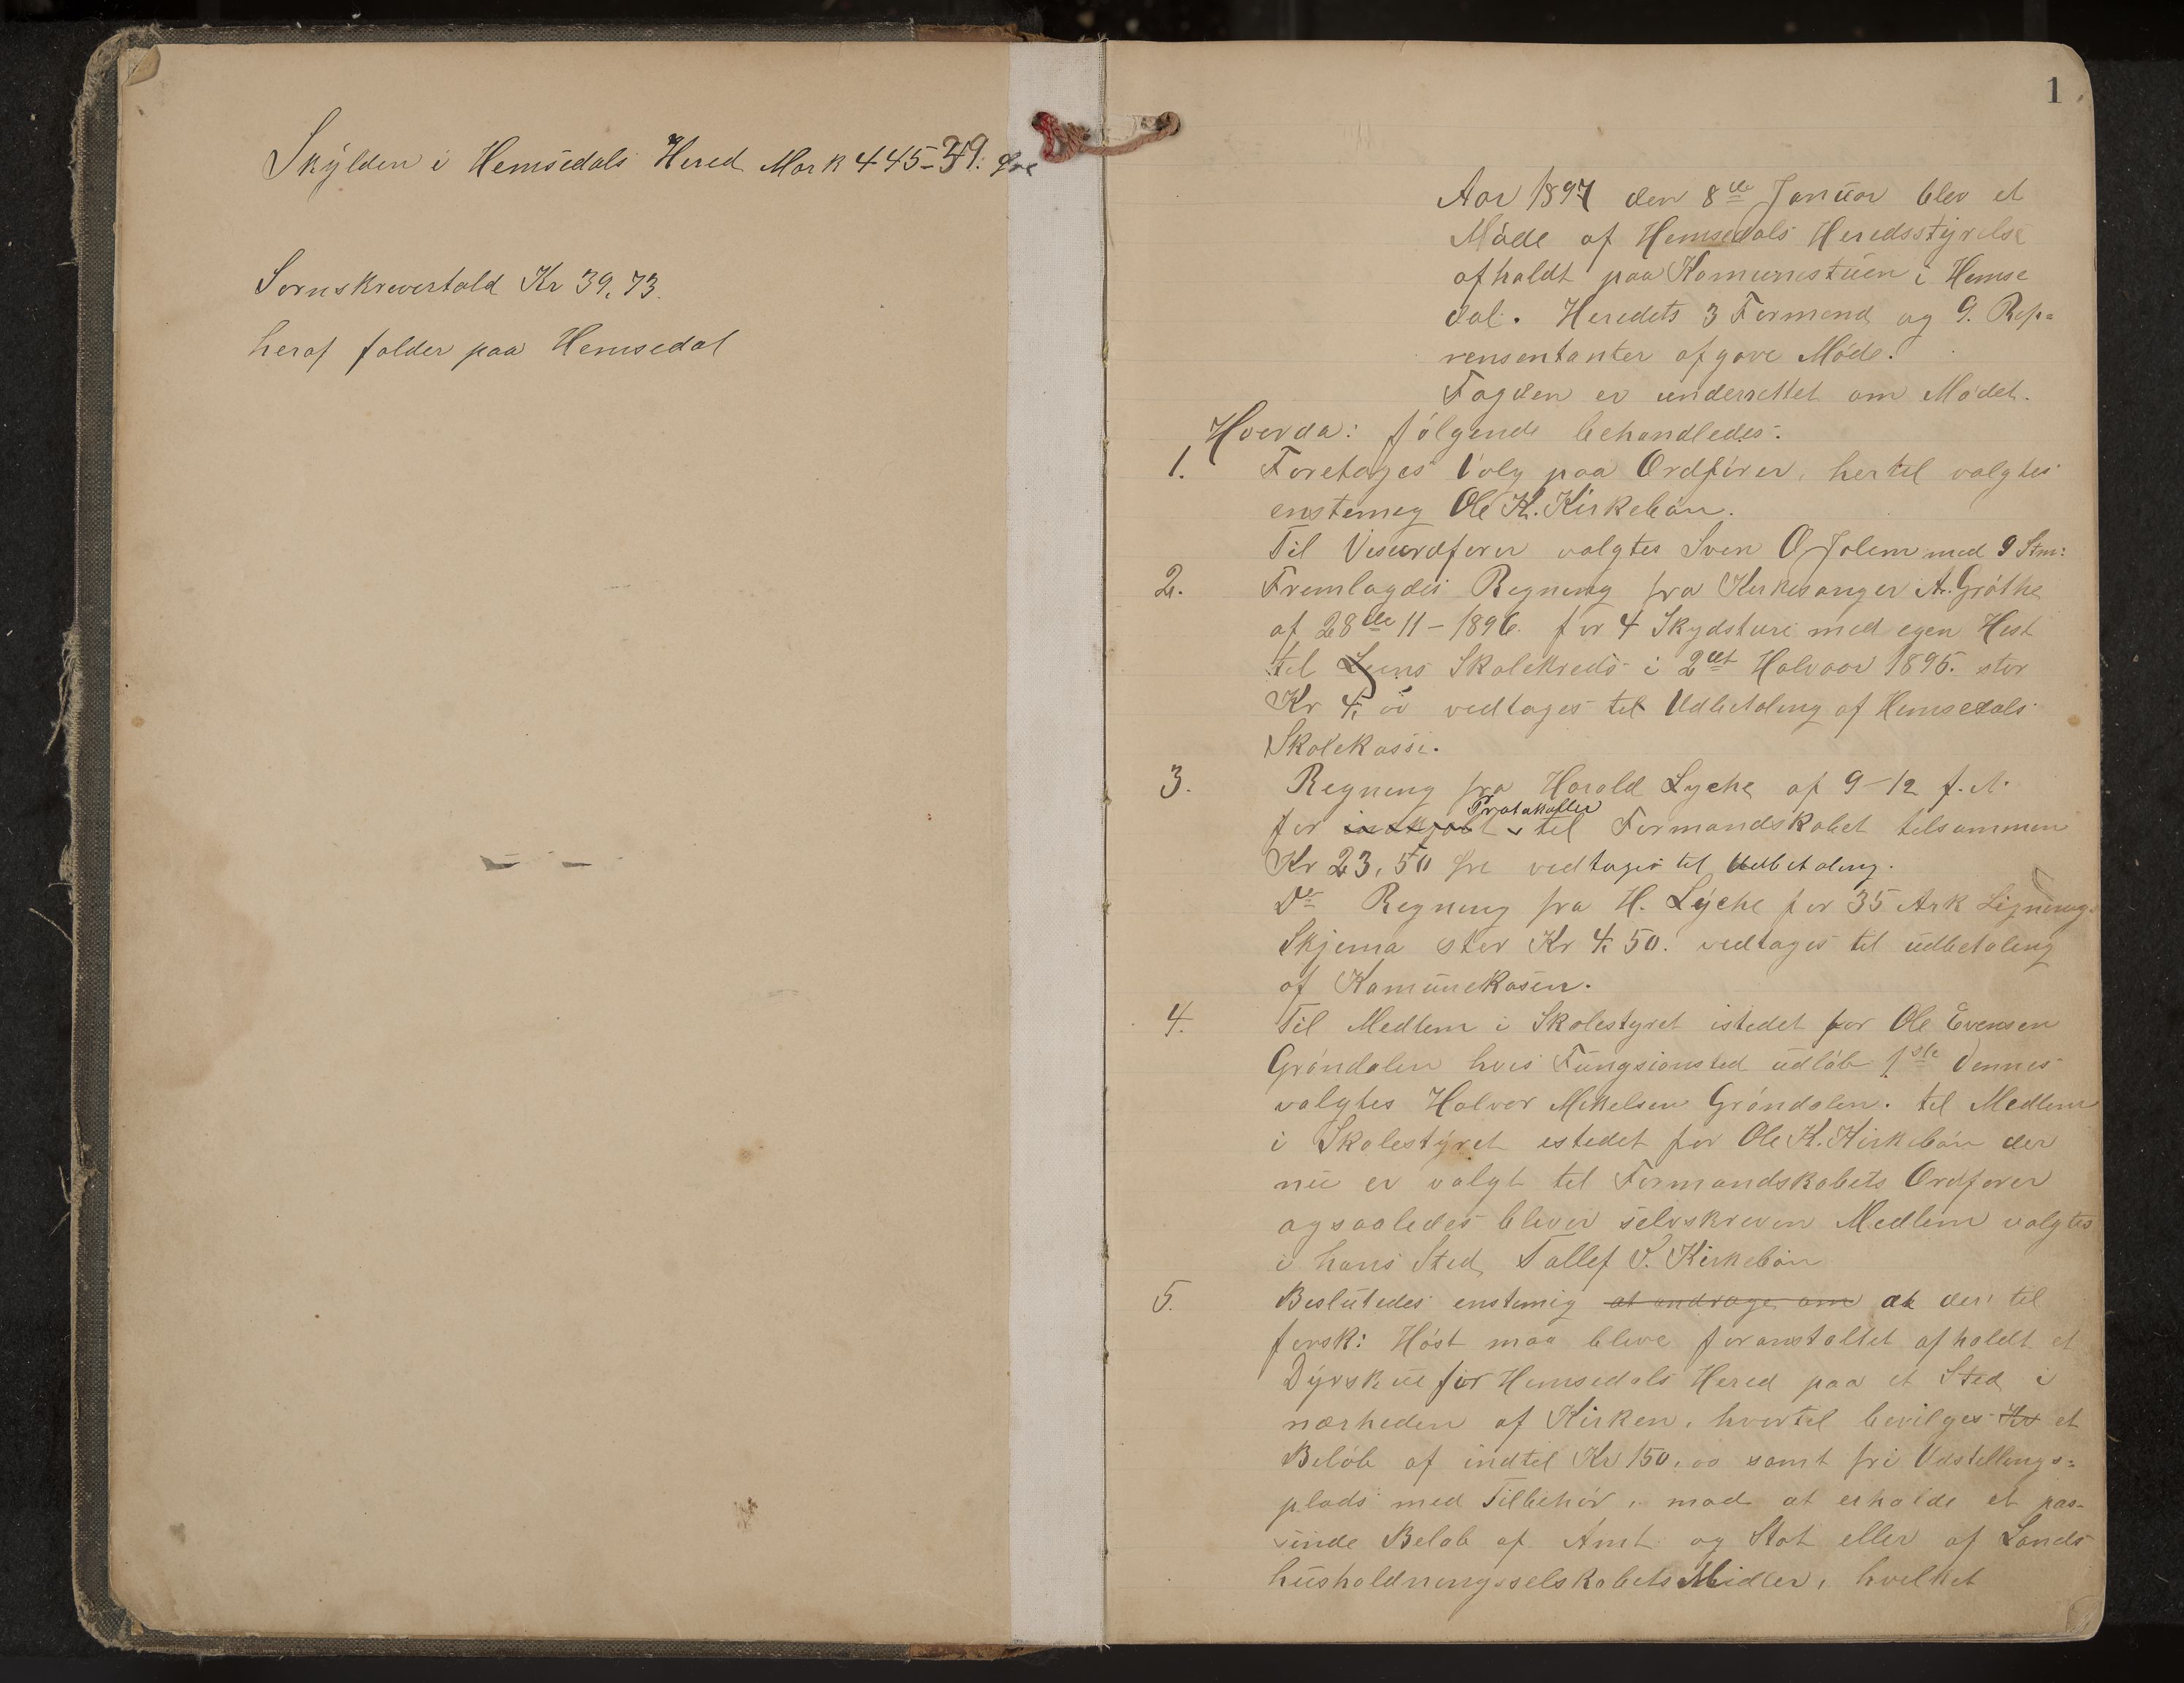 Skylden i Hemsedals Hered Mark 445-39. Øre
Sornskrevertold Kr 39,73.
heraf falder paa Hemsedal
1
Aar 1897 den 8de Januar blev et
Møde af Hemsedals Heredsstyrelse
afholdt paa Komunestuen i Hemse
dal. Heredets 3 Formend og 9. Rep=
rensentanter afgave Møde.
Fogden er underrettet om Mødet.
Hvorda: følgende behandledes:
1. Foretages Valg paa Ordfører, hertil valgtes
enstemeg Ole K. Kirkebøn.
Til Viseordfører valgtes Sven O Jolem med 9 Stm:
2. Fremlagdes Regning fra Kirkesanger A. Grøthe
af 28de 11-1896. for 4 Skydsture med egen Hest
til Skolekreds i 2det Halvaar 1896. stor
Kr 4, oo vedtages til Udbetaling af Hemsedals
Skolekasse.
3. Regning fra Harald Lyche af 9-12 f. A.
for Protokoller til Formandskabet tilsammen
Kr 23,50 øre vedtages til Udbetaling.
Do Regning fra H. Lyche for 35 Ark Lignings
Skjema stor Kr 4,50. vedtages til udbetaling
af Kamunekasen.
4. Til Medlem i Skolestyret istedet for Ole Evensen
Grøndalen hvis Fungsionsted udløb 1ste dennes
valgtes Halvor Mikelsen Grøndalen. til Medlem
i Skolestyret estedet for Ole K. Kirkebøn der
nu er valgt til Formandskabets Ordfører
og saaledes bliver selvskreven Medlem valgtes
i hans Sted Tollef T. Kirkebøn
5. Beslutedes enstemig at andrage om at der til
førsk: Høst maa blive foranstaltet afholdt et
Dyrskue for Hemsedals Hered paa et Sted i
nærheden af Kirken, hvortil bevilges Kr et
Beløb af indtil Kr 150,oo samt fri Udstellings=
plads med Tilbehør, mod at erholde et pas-
sende Beløb af Amt og Stat eller af Lands
husholdningsselskabets Midler, hvilket